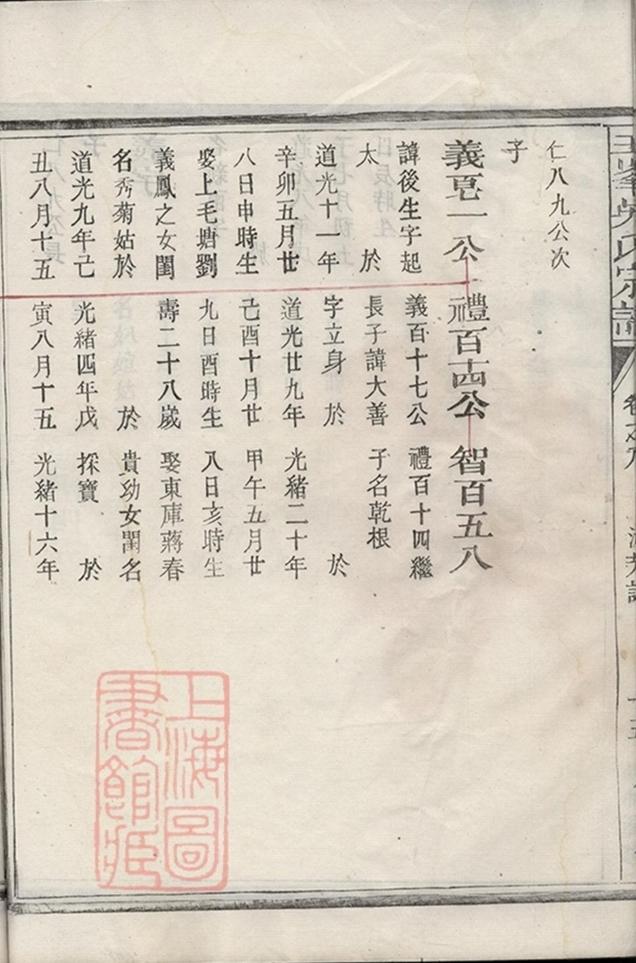 仁八九公次
子
義一公
諱後生字起
太 於
道光十一年
辛卯五月廿
八日申時生
娶上毛塘劉
義鳳之女閨
名秀菊姑於
道光九年己
丑八月十五
禮百十四公
義百十七公
長子諱大善
字立身 於
道光廿九年
己酉十月廿
九日酉時生
壽二十八歲
於
光緒四年戊
寅八月十五
智百五八
禮百十四繼
子名乾根
於
光緒二十年
甲午五月廿
八日亥時生
娶東庫蔣春
貴幼女閨名
採寶 於
光緒十六年
上海圖
書館藏